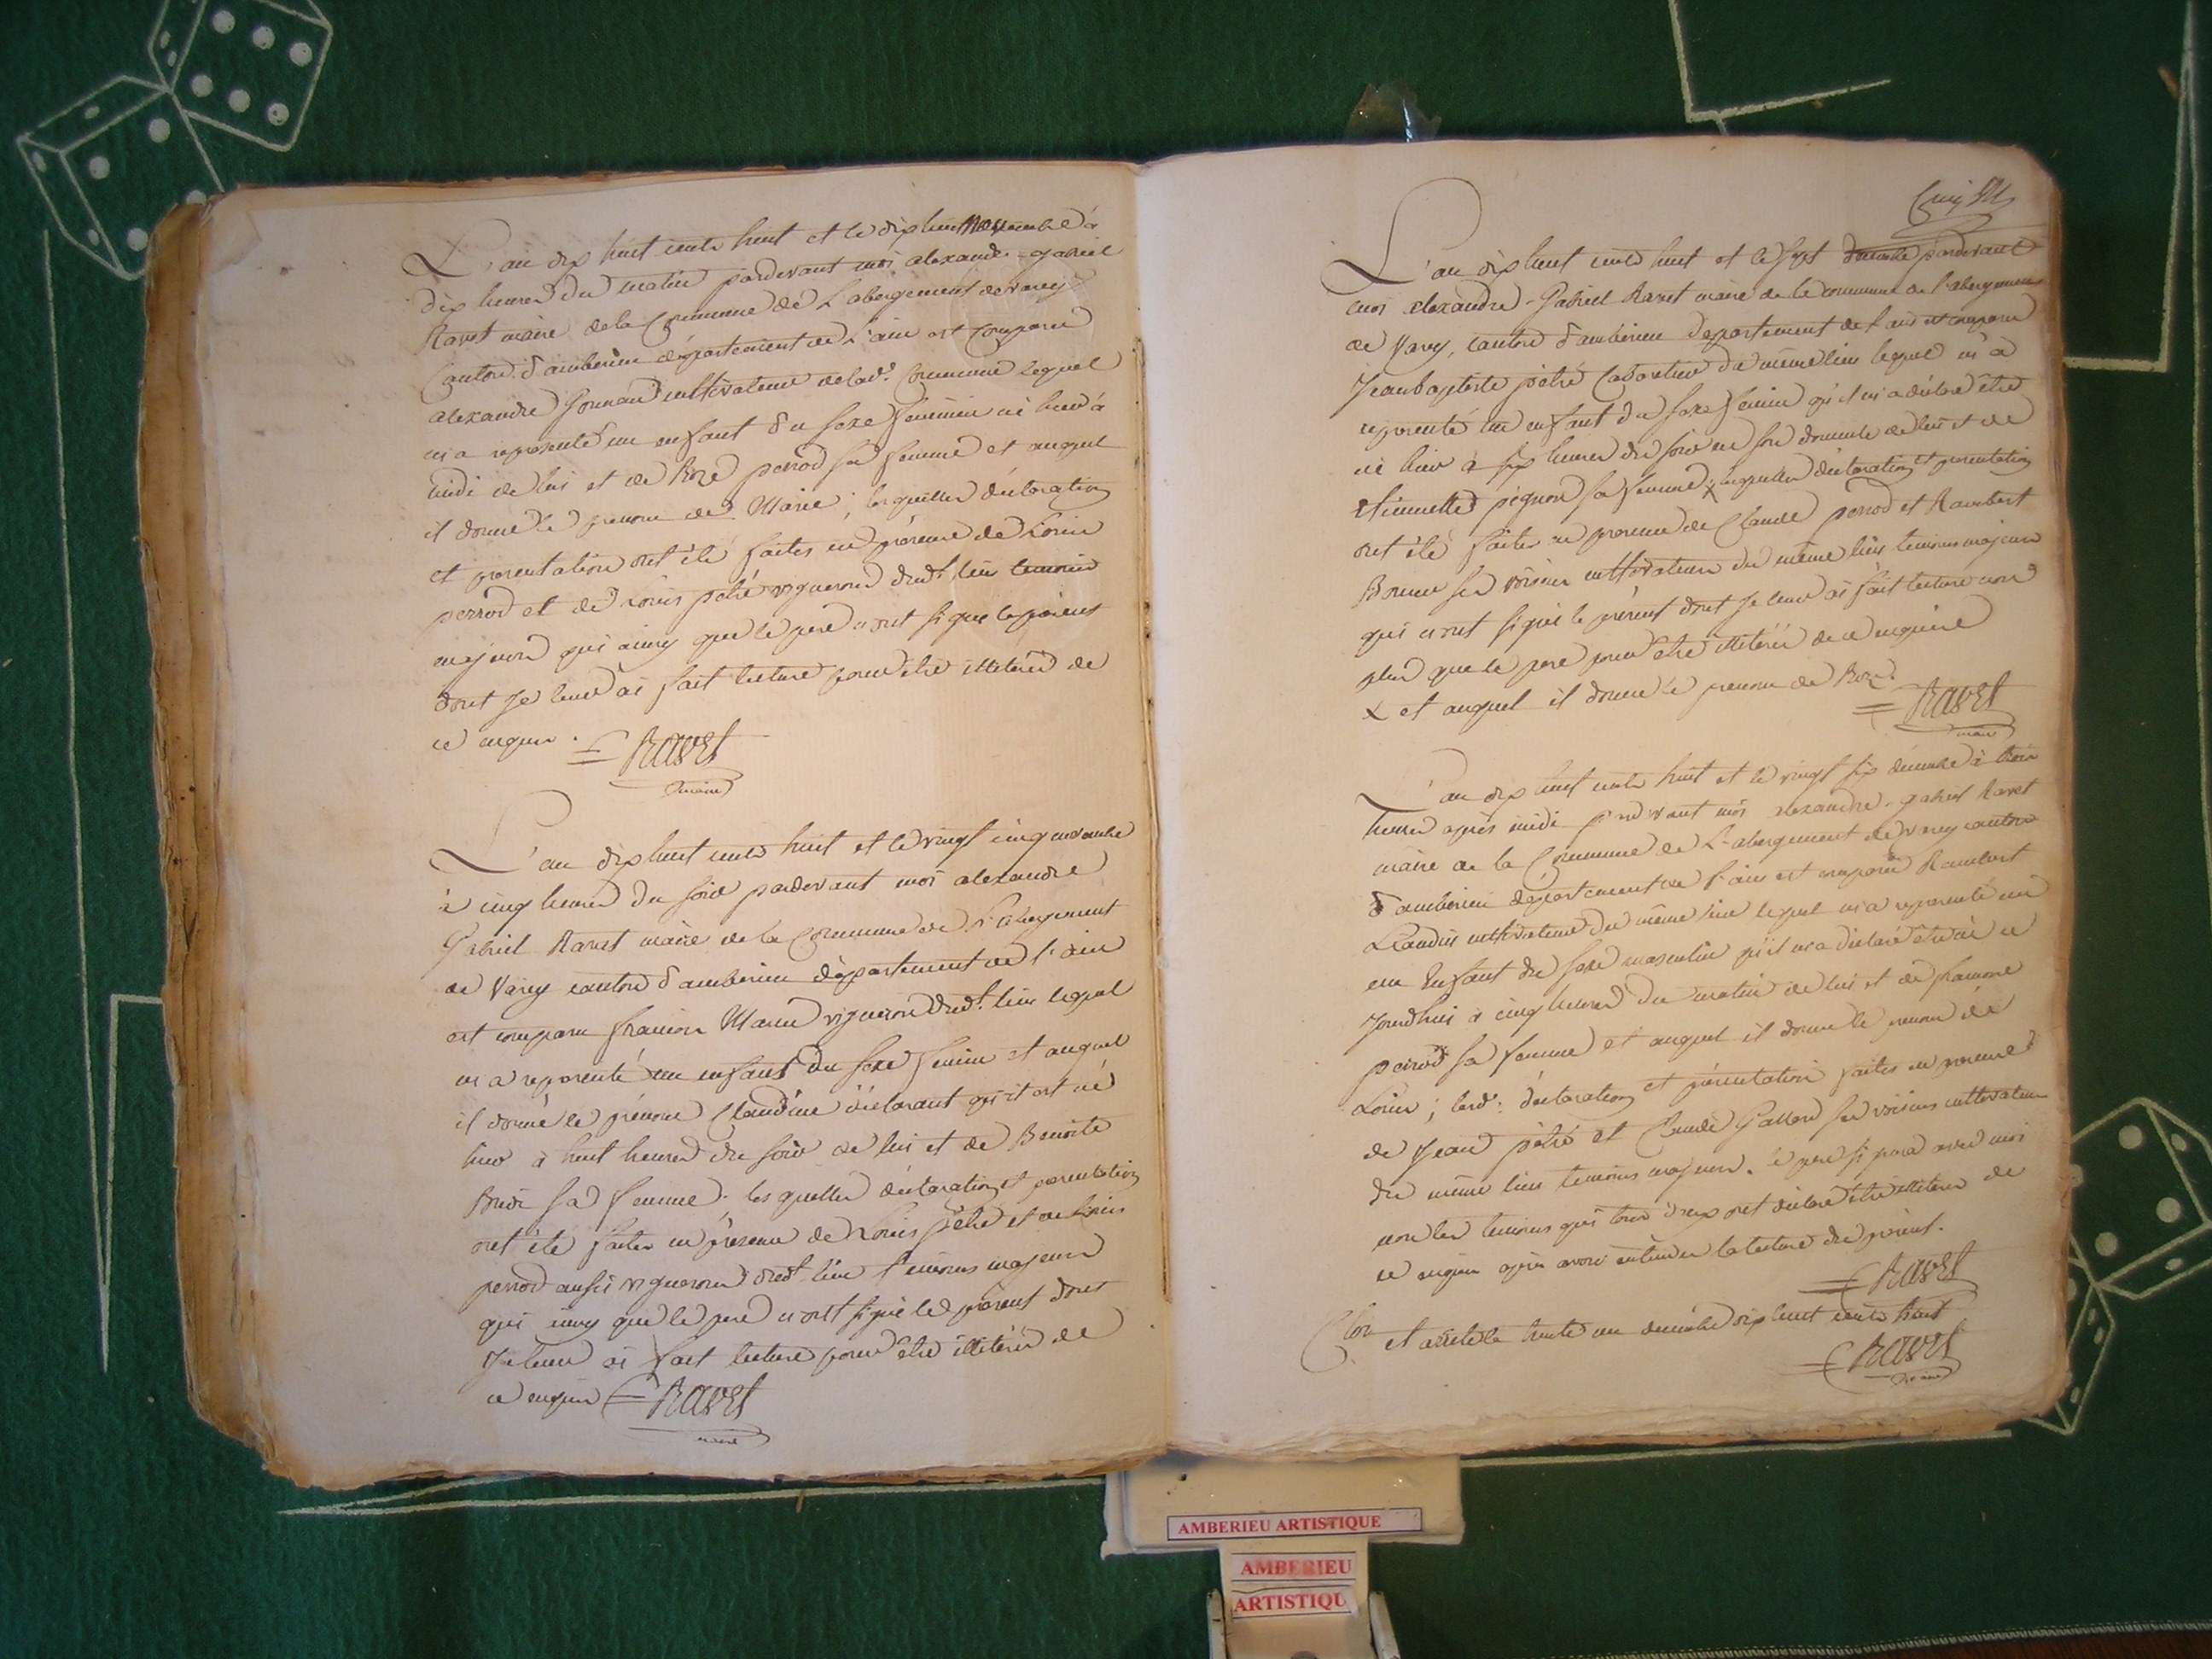 L'an dix huit cents huit et le dix huit novembre à
dix heures du matin pardevant moi alexandre-gabriel
Ravet maire de la Commune de L'abergement de varey
Canton d'amberieu département de L'ain est Comparu
alexandre cultivateur de lad.e Commune lequel
m'a représenté un enfant du sexe feminin né hier à
midi de lui et de Roze perrod sa femme et auquel
il donne le prenom de Marie ; lesquelles déclaration
et presentation ont été faites en présence de Louis
perrod et de Louis petré vignerons dudt lieu temoins
majeurs qui ainsy que le pere n'ont signé le présent
dont Je leurs ai fait lecture pour être illiteré de
ce enquis. Ravet
maire
L'an dix huit cents huit et le vingt cinq novembre
à cinq heures du soir pardevant moi alexandre
Gabriel Ravet maire de la Commune de L'abergement
de Varey canton d'amberieu département de l'ain
est comparu françois vigneron dudt. lieu lequel
m'a représenté un enfant du sexe feminin et auquel
il donne le prénom Claudine déclarant qu'il est né
hier à huit heures du soir de lui et de Benoite
sa femme. lesquelles déclaration et presentation
ont été faites en présence de Louis petré et de Louis
perrod aussi vignerons dudt. lieu temoins majeurs
qui ainsy que le pere n'ont signé le présent dont
Je leurs ai fait lecture pour être illitéré de
ce enquis Ravet
maire
L'an dix huit cents huit et le sept décembre pardevant
moi alexandre-Gabriel Ravet maire de la commune de l'abergement
de Varey, canton d'amberieu département de l'ain est comparu
Jean baptiste petré du même lieu lequel m'a
représenté un enfant du sexe feminin qu'il m'a déclaré être
né hier à six heures du soir en son domicile de lui et de
Etiennette pignon sa femme x lesquelles déclaration et presentation
ont été faites en presence de Claude perrod et Rambert
Bonnet ses voisins cultivateurs du même lieu temoins majeurs
qui n'ont signé le présent dont Je leur ai fait lecture non
plus que le pere pour être illitéré de ce enquis
x et auquel il donne le prenom de Roze. Ravet
maire
L'an dix huit cents huit et le vingt six décembre à trois
heures après midi pardevant moi alexandre-gabriel Ravet
maire de la Commune de L'abergement de varey canton
d'amberieu département de l'ain est comparu Rambert
cultivateur du même lieu lequel m'a représenté un
enfant du sexe masculin qu'il m'a déclaré être né ce
Jourdhui à cinq heures du matin de lui et de
perrod sa femme et auquel il donne le prenom de
Louis ; lesd. déclaration et présentation faites en presence
de Jean petré et Claude ses voisins cultivateurs
du même lieu temoins majeurs. le pere signera avec moi
non les temoins qui tous deux ont déclaré être illiteré de
ce enquis après avoir entendu la lecture du présent.
Ravet
Clos et arrêté le trente un décembre dix huit cents huit
Ravet
maire
AMBERIEU ARTISTIQUE
AMBERIEU
ARTISTIQU